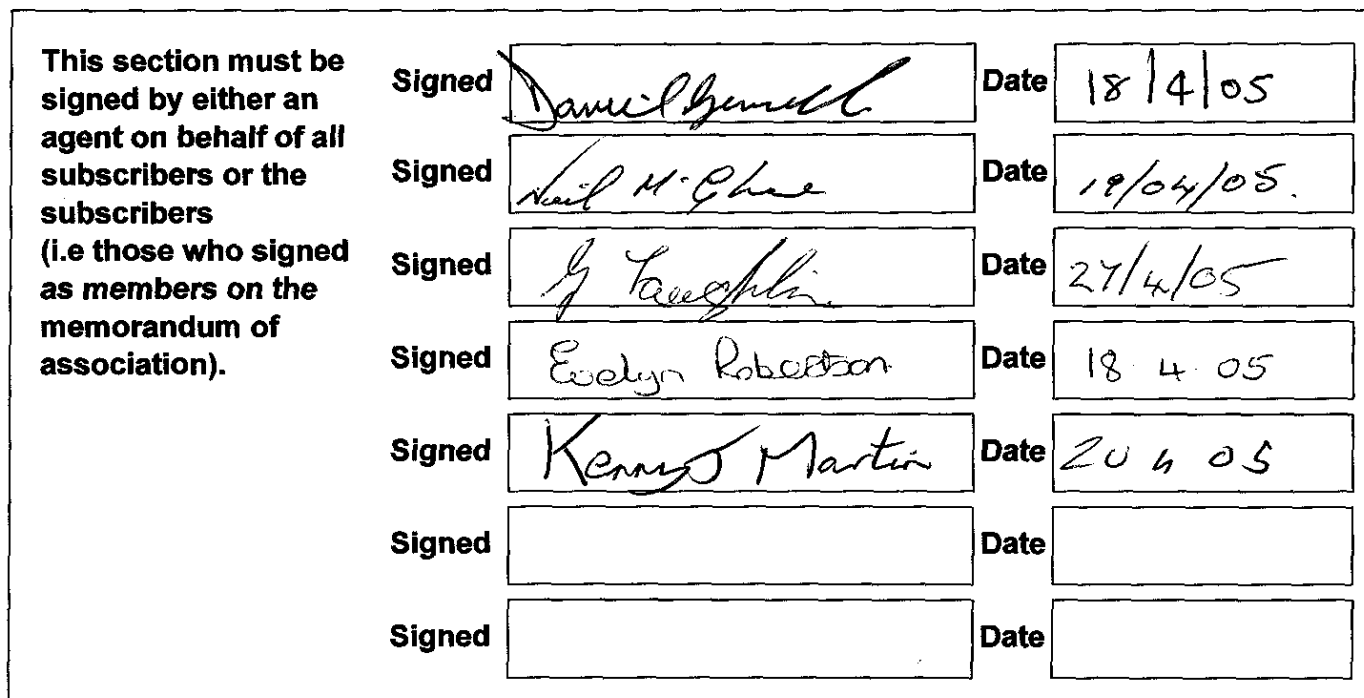 This section must be
signed by either an
agent on behalf of all
subscribers or the
subscribers
(i.e those who signed
as members on the
memorandum of
association).
Signed Daniel Date 18/4/05
Signed Neil McGhee Date 19/04/05.
Signed G Laughlin Date 27/4/05
Signed Evelyn Robertson Date 18 4 05
Signed Kenny J Martin Date 20 4 05
Signed Date
Signed Date